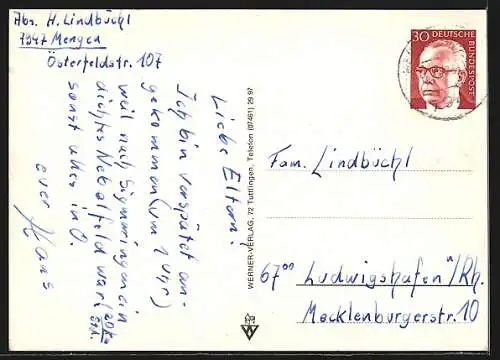 Abs. H. Lindbüchl
7947 Mengen
Österfeldstr. 107
Liebe Eltern!
Ich bin verspätet an-
gekommen (um 1 Uhr)
weil nach Sigmaringen ein
dichtes Nebelfeld war (20 km
Std.
sonst alles in O.
euer Hans
WERNER-VERLAG, 72 Tuttlingen, Telefon (07461) 29 97
30 DEUTSCHE BUNDESPOST
Fam. Lindbüchl
6700 Ludwigshafen a/Rh.
Mecklenburgerstr. 10
W